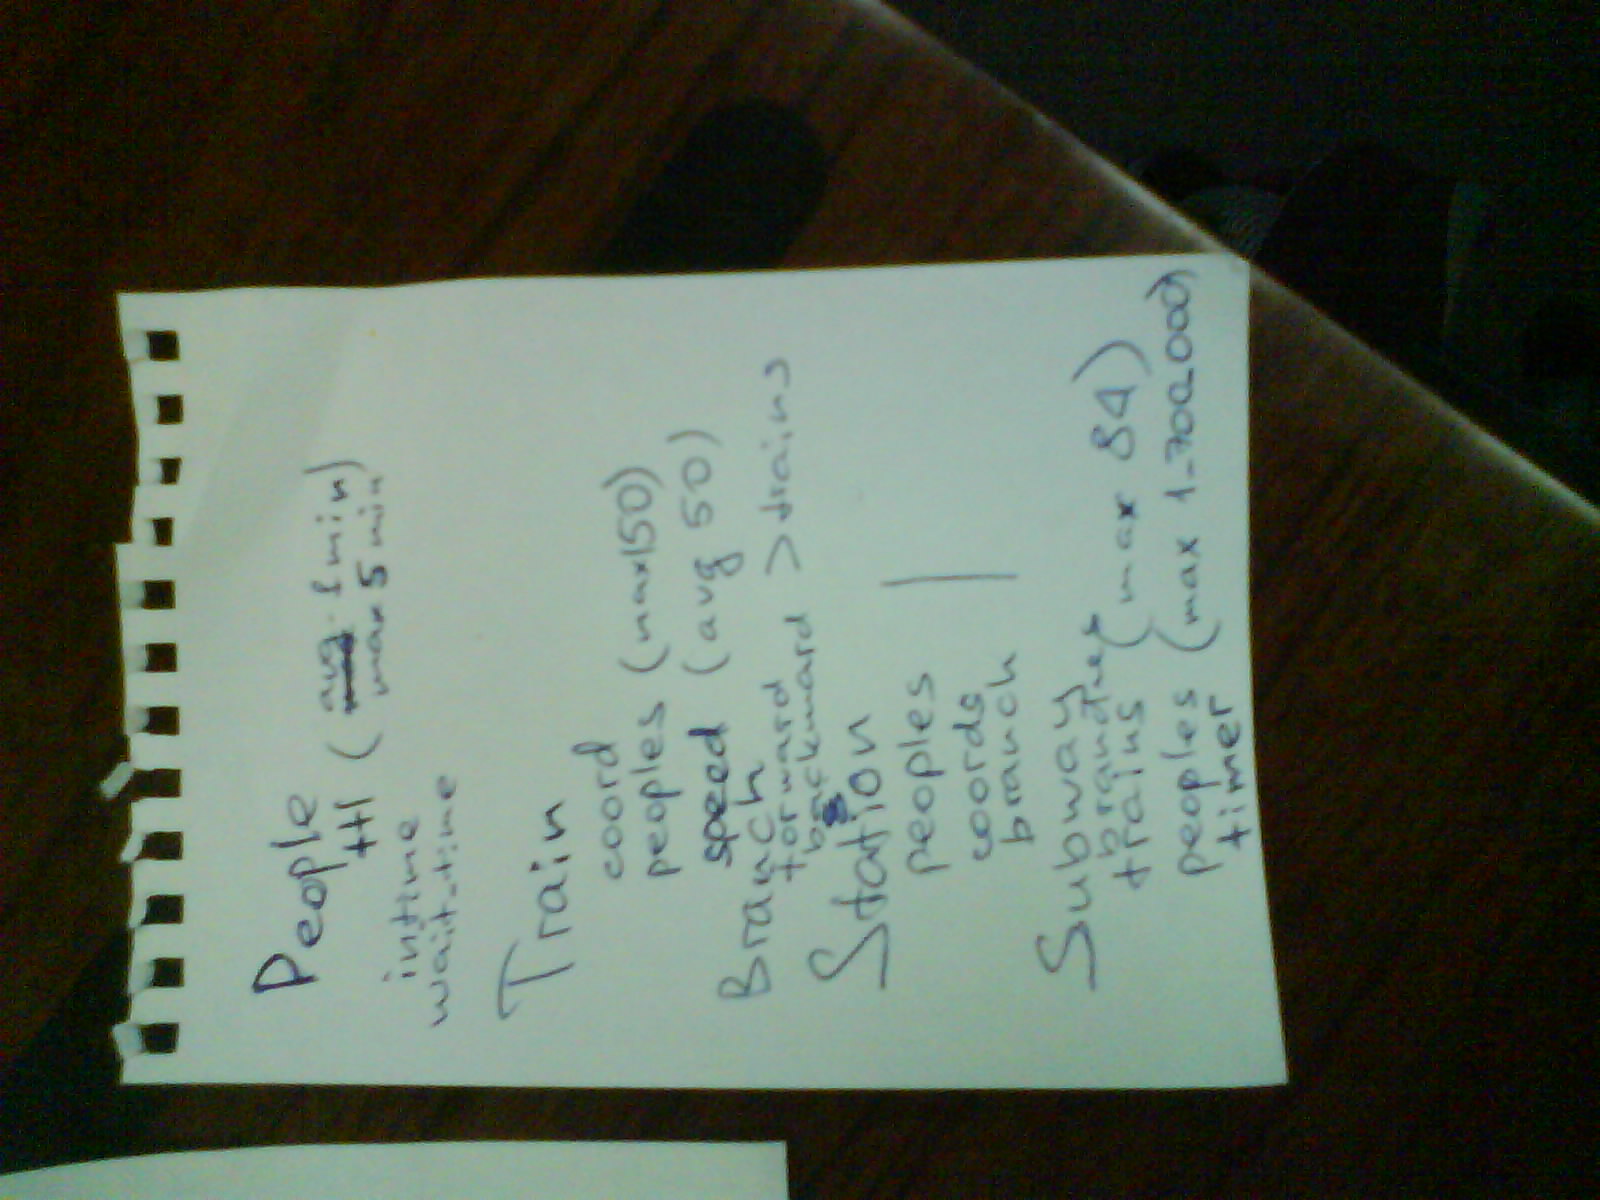 People
ttl ( avg. 1 min)
max 5 min
intime
wait_time
Train
coord
peoples (max 150)
speed (avg 50)
Branch
forward
backward > trains
Station
peoples
coords
branch
Subway
branches
trains (max 84)
peoples (max 1_700_000)
timer